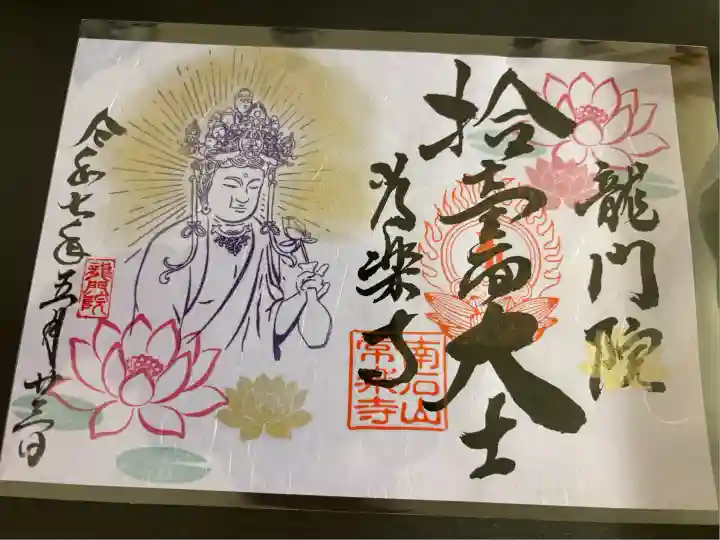 龍門院
拾壹面大士
常楽寺
南石山
常楽寺
令和七年五月廿三日
龍門院